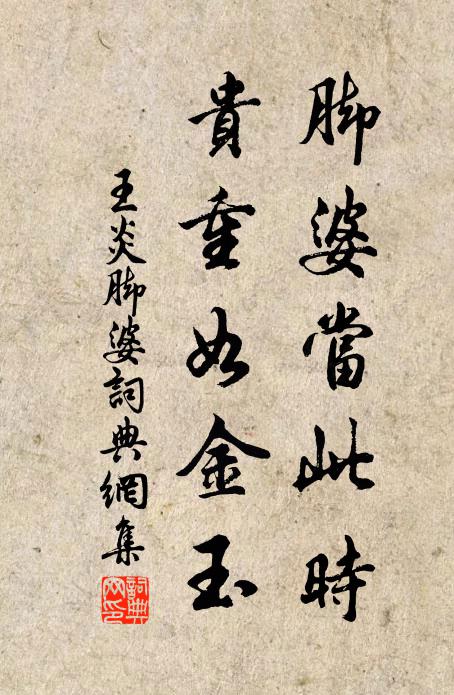 脚婆當此時
貴重如金玉
王炎脚婆詞典網集
詞典網印